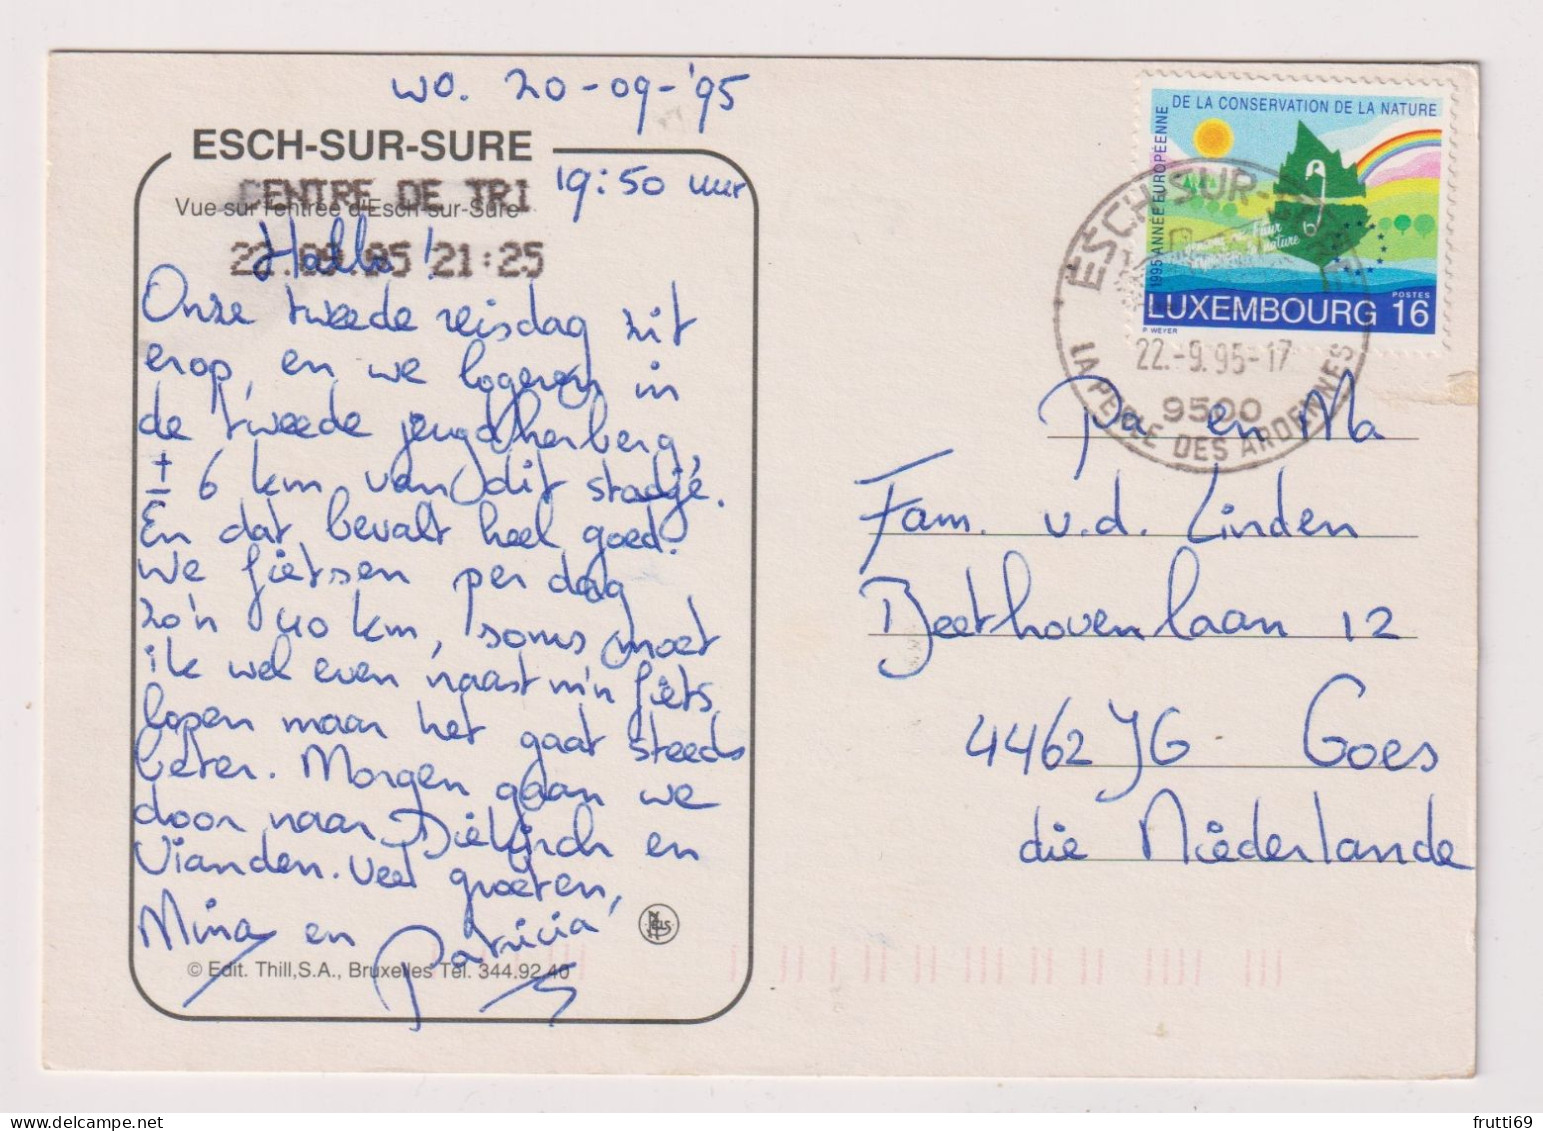 wo. 20-09-'95
ESCH-SUR-SURE
CENTRE DE TRI
19:50 uur
Vue sur l'entrée d'Esch-sur-Sure
22.09.95 21:25
Hallo!
Onze tweede reisdag zit
erop, en we logeren in
de tweede jeugdherberg,
± 6 km van dit stadje.
En dat bevalt heel goed.
We fietsen per dag
zo'n 40 km, soms moet
ik wel even naast m'n fiets
lopen maar het gaat steeds
beter. Morgen gaan we
door naar Diekirch en
Vianden. Veel groeten,
Mina en Patricia
© Edit. Thill,S.A., Bruxelles Tél. 344.92.40
NELS
1995 ANNÉE EUROPÉENNE
DE LA CONSERVATION DE LA NATURE
LUXEMBOURG
POSTES
16
P. WEYER
ESCH-SUR-
22.-9.95-17
9500
LA PERLE DES ARDENNES
Pa en Ma
Fam. v.d. Linden
Beethovenlaan 12
4462 JG Goes
die Niederlande
frutti69